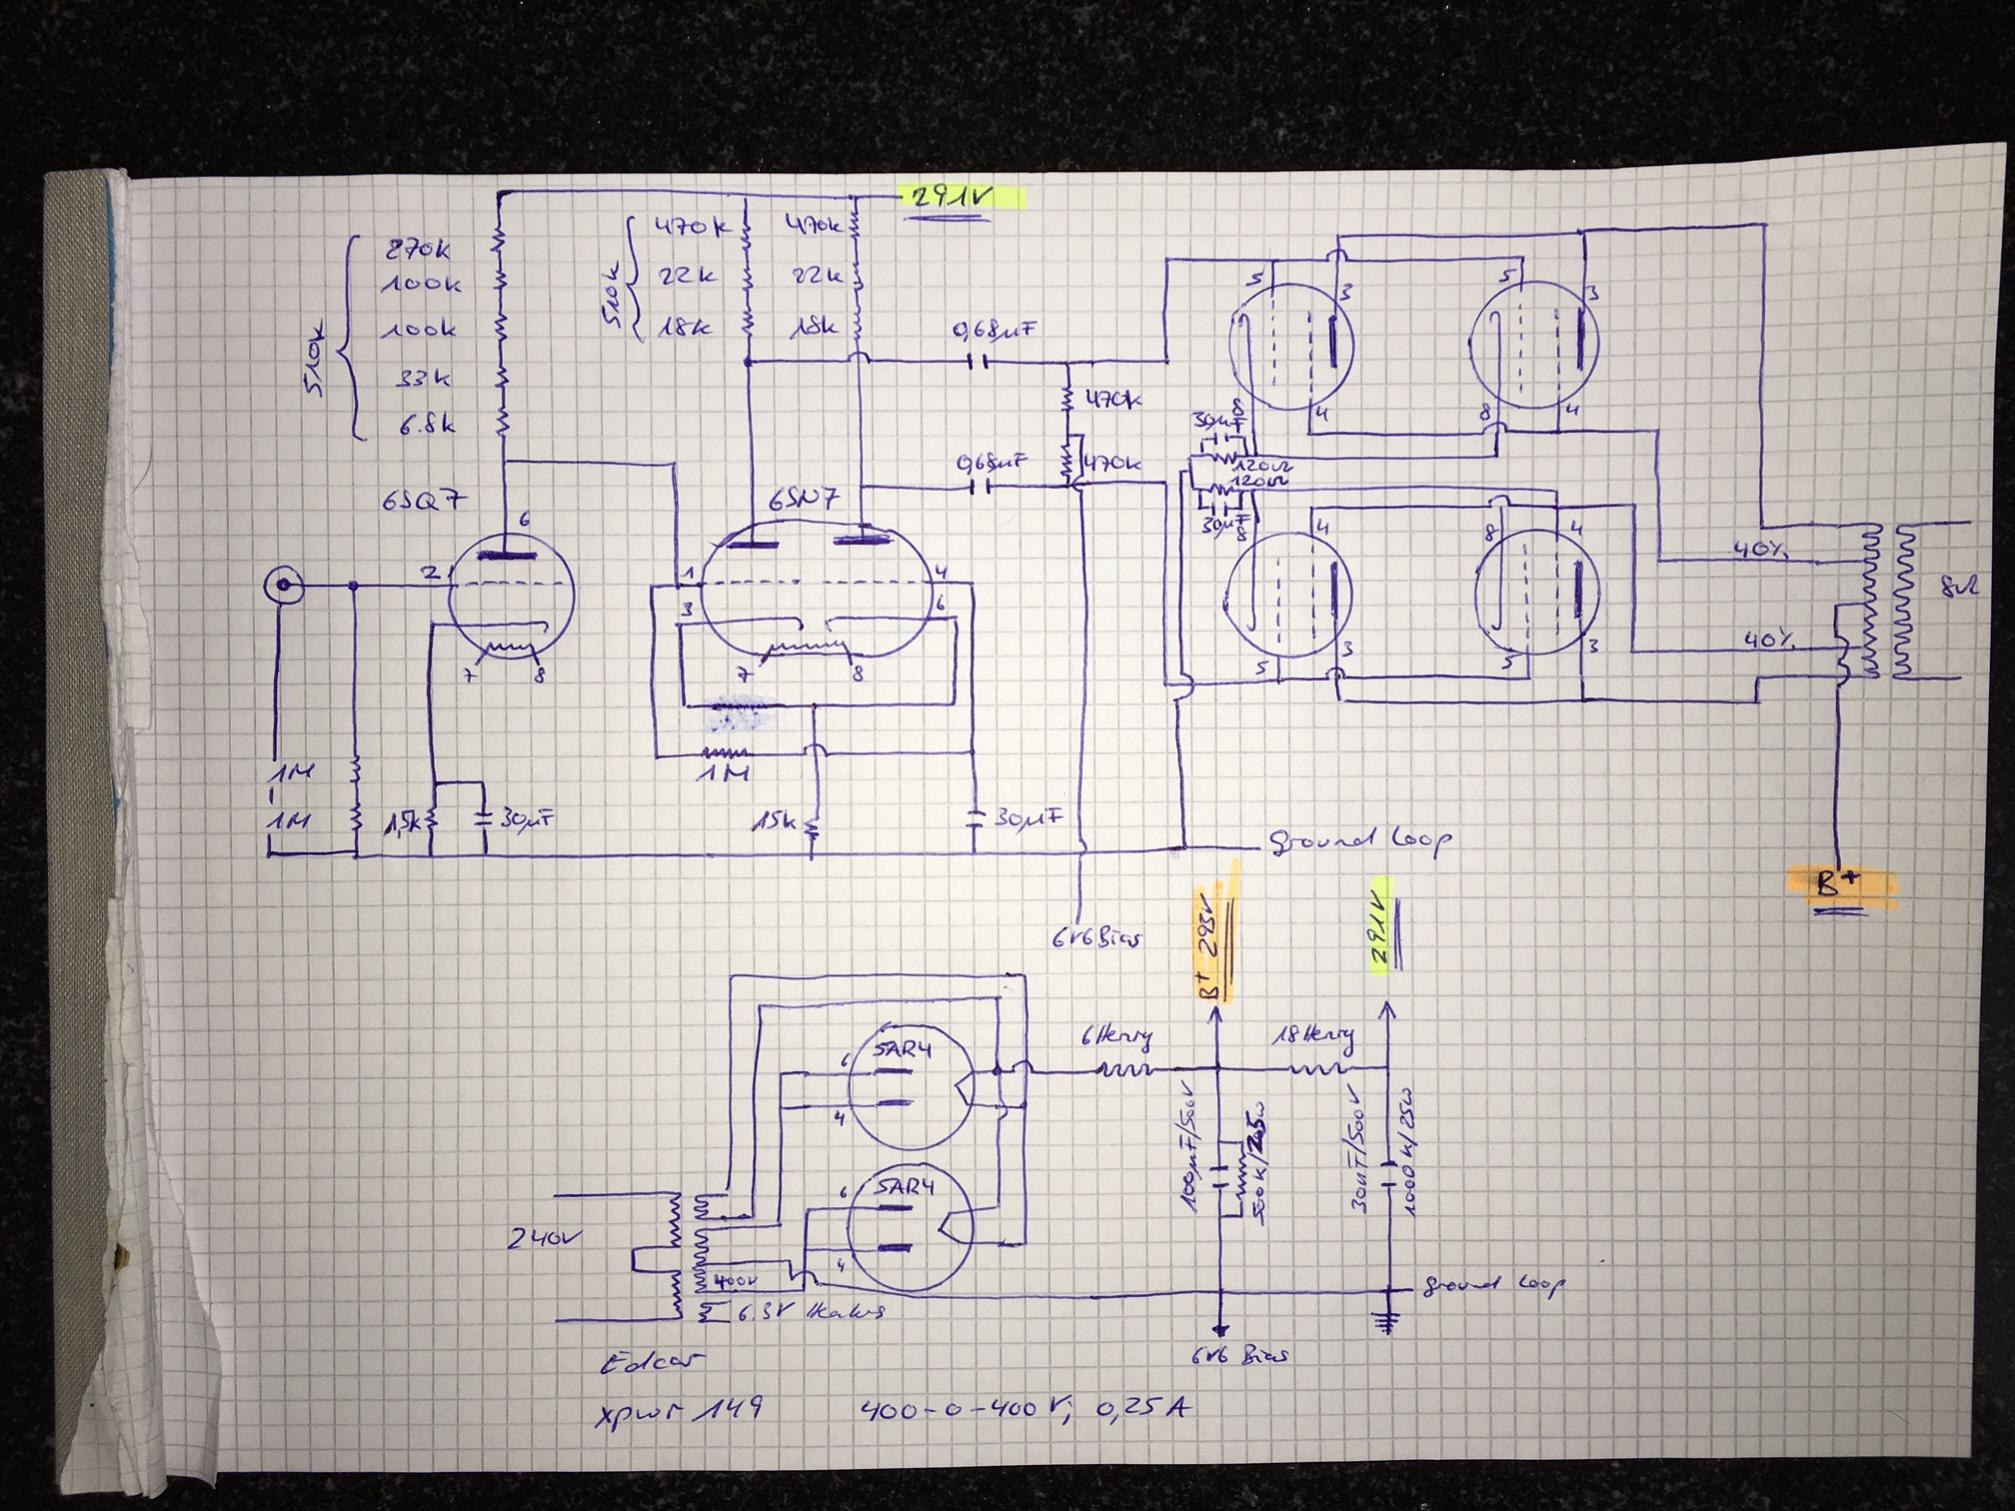 291V
270k
100k
100k
33k
6.8k
510k
470k
22k
18k
510k
470k
22k
18k
0,68µF
470k
0,68µF
470k
5
3
5
3
8
4
8
4
30µF
120Ω
120Ω
30µF
8
4
8
4
5
3
5
3
40%
40%
8Ω
6SQ7
6
2
7
8
6SN7
1
3
4
6
7
8
1M
1M
1M
1,5k
30µF
15k
30µF
Ground Loop
B+
6V6 Bias
B+ 293V
291V
5AR4
6
4
6 Henry
18 Henry
100µF/500V
500k/25W
30µF/500V
1000k/25W
5AR4
6
4
240V
400V
6.3V
Ground Loop
6V6 Bias
Edcor
xpwr 149
400-0-400V; 0,25A